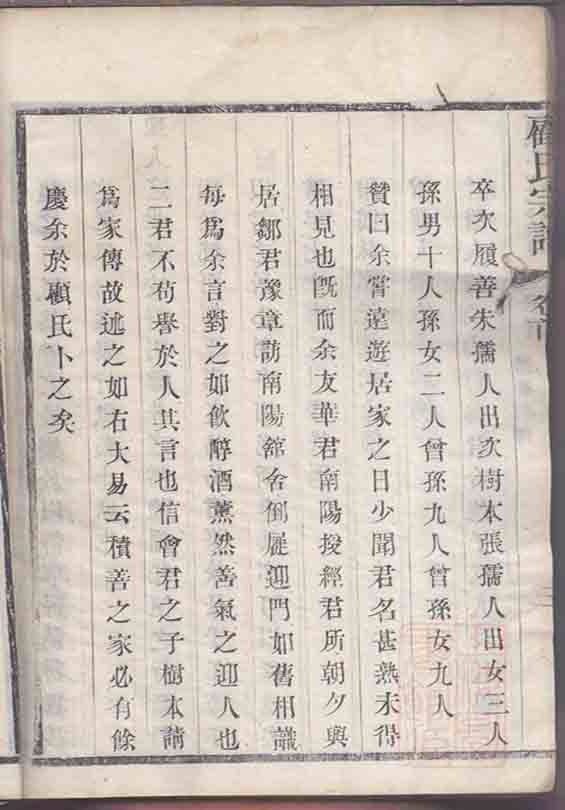 顧氏宗譜 卷首
卒次履善朱孺人出次樹本張孺人出女三人
孫男十人孫女二人曾孫九人曾孫女九人
贊曰余嘗遠遊居家之日少聞君名甚熟未得
相見也旣而余友華君南陽授經君所朝夕與
居鄒君豫章訪南陽舘舍倒屣迎門如舊相識
每爲余言對之如飲醇酒薰然善氣之迎人也
二君不苟譽於人其言也信會君之子樹本請
爲家傳故述之如右大易云積善之家必有餘
慶余於顧氏卜之矣